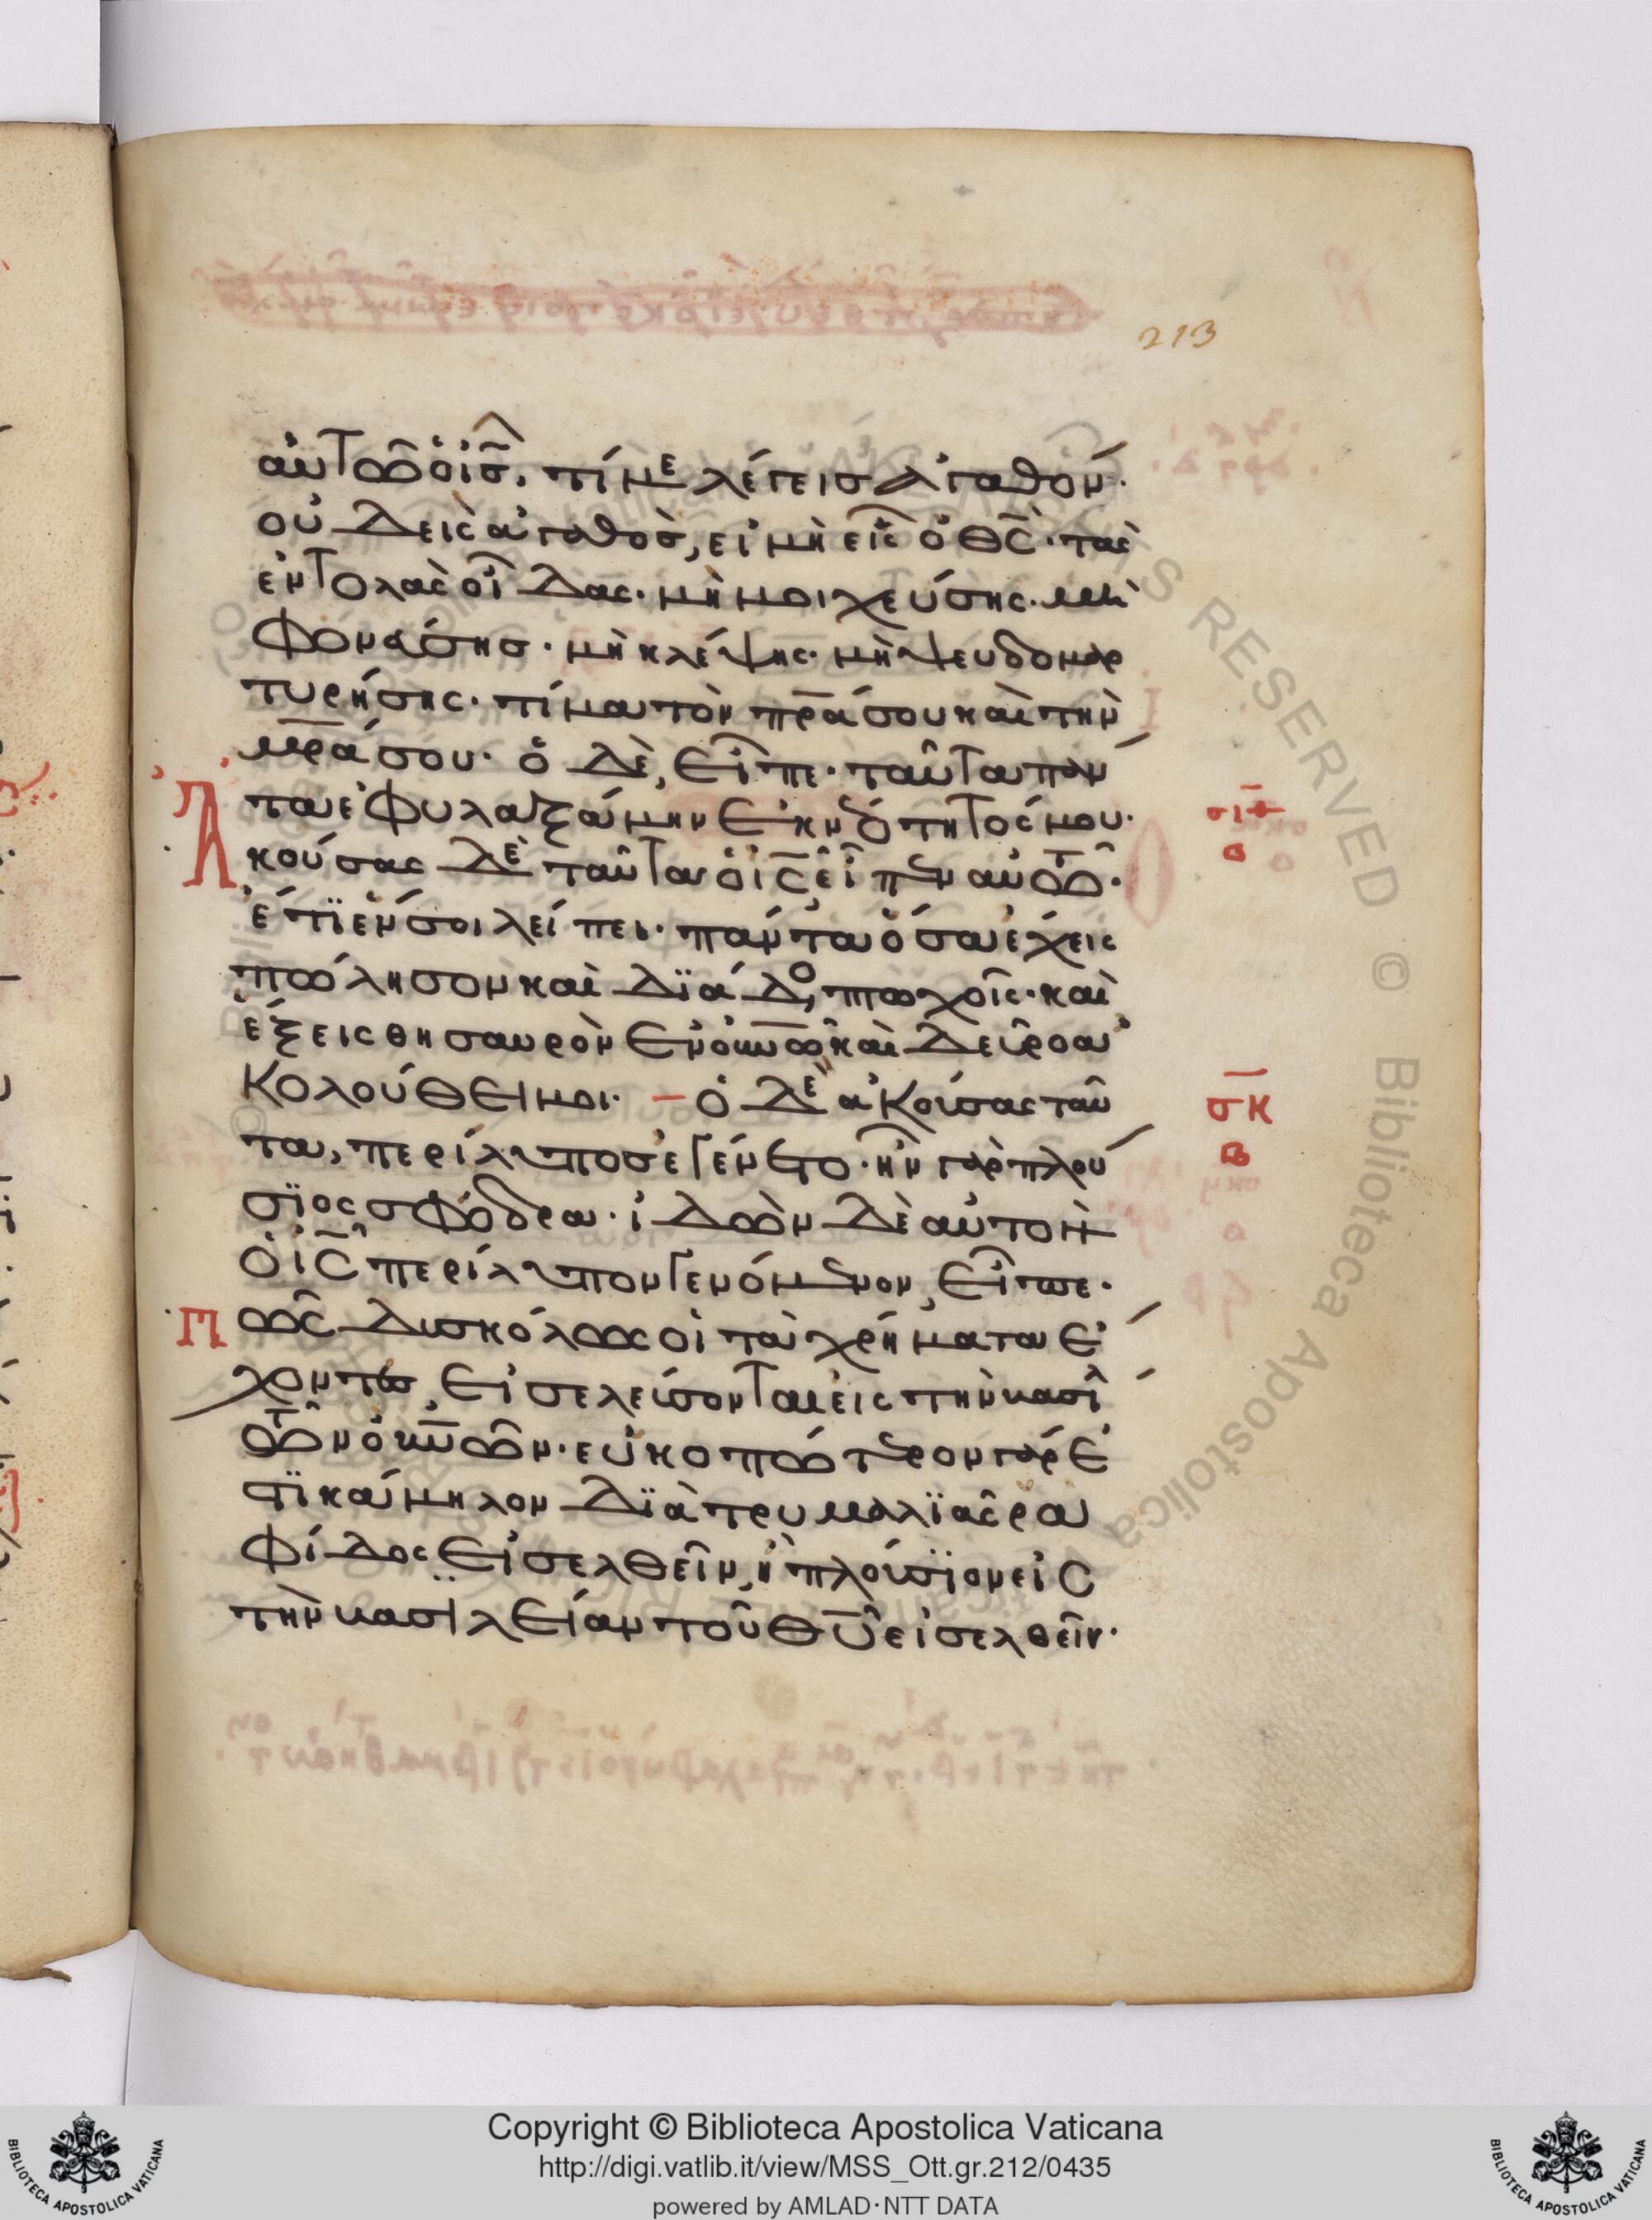 213
αὐτῶ ὁ ις̅, τί με λέγεις ἀγαθόν·
οὐδεὶς ἀγαθὸς, εἰ μὴ εἷς ὁ θς̅· τὰς
ἐντολὰς οἶδας· μὴ μοιχεύσης· μὴ
φονεύσης· μὴ κλέψης· μὴ ψευδομαρ
τυρήσης· τίμα τὸν πρ̅ά σου καὶ τὴν
μρ̅ά σου· ὁ δὲ, εἶπε· ταῦτα πάν
τα ἐφυλαξάμην ἐκ νεότητός μου·
Ἀκούσας δὲ ταῦτα ὁ ις̅, εἶπεν αὐτῶ·
ἔτι ἕν σοι λείπει· πάντα ὅσα ἔχεις
πώλησον καὶ διάδος πτωχοῖς· καὶ
ἕξεις θησαυρὸν ἐν οὐνω̅ καὶ δεῦρο ἀ
κολούθει μοι· – ὁ δὲ ἀκούσας ταῦ
τα, περίλυπος ἐγένετο· ἦν γὰρ πλού
σϊος σφόδρα· ἰδὼν δὲ αὐτὸν
ὁ ις̅ περίλυπον γενόμενον, εἶπε·
Πῶς δυσκόλως οἱ τὰ χρήματα ἔ
χοντες, εἰσελεύσονται εἰς τὴν βασι
τῶν οὐνω̅ν· εὐκοπώτερον γάρ ἐ
στϊ κάμηλον δϊὰ τρυμαλϊᾶς ρα
φίδος εἰσελθεῖν, ἢ πλούσϊον εἰς
τὴν βασιλείαν τοῦ θυ̅ εἰσελθεῖν·
σιθ
α
σκ
β
RIGHTS RESERVED © Biblioteca Apostolica
Copyright © Biblioteca Apostolica Vaticana
http://digi.vatlib.it/view/MSS_Ott.gr.212/0435
powered by AMLAD·NTT DATA
BIBLIOTECA APOSTOLICA VATICANA
BIBLIOTECA APOSTOLICA VATICANA